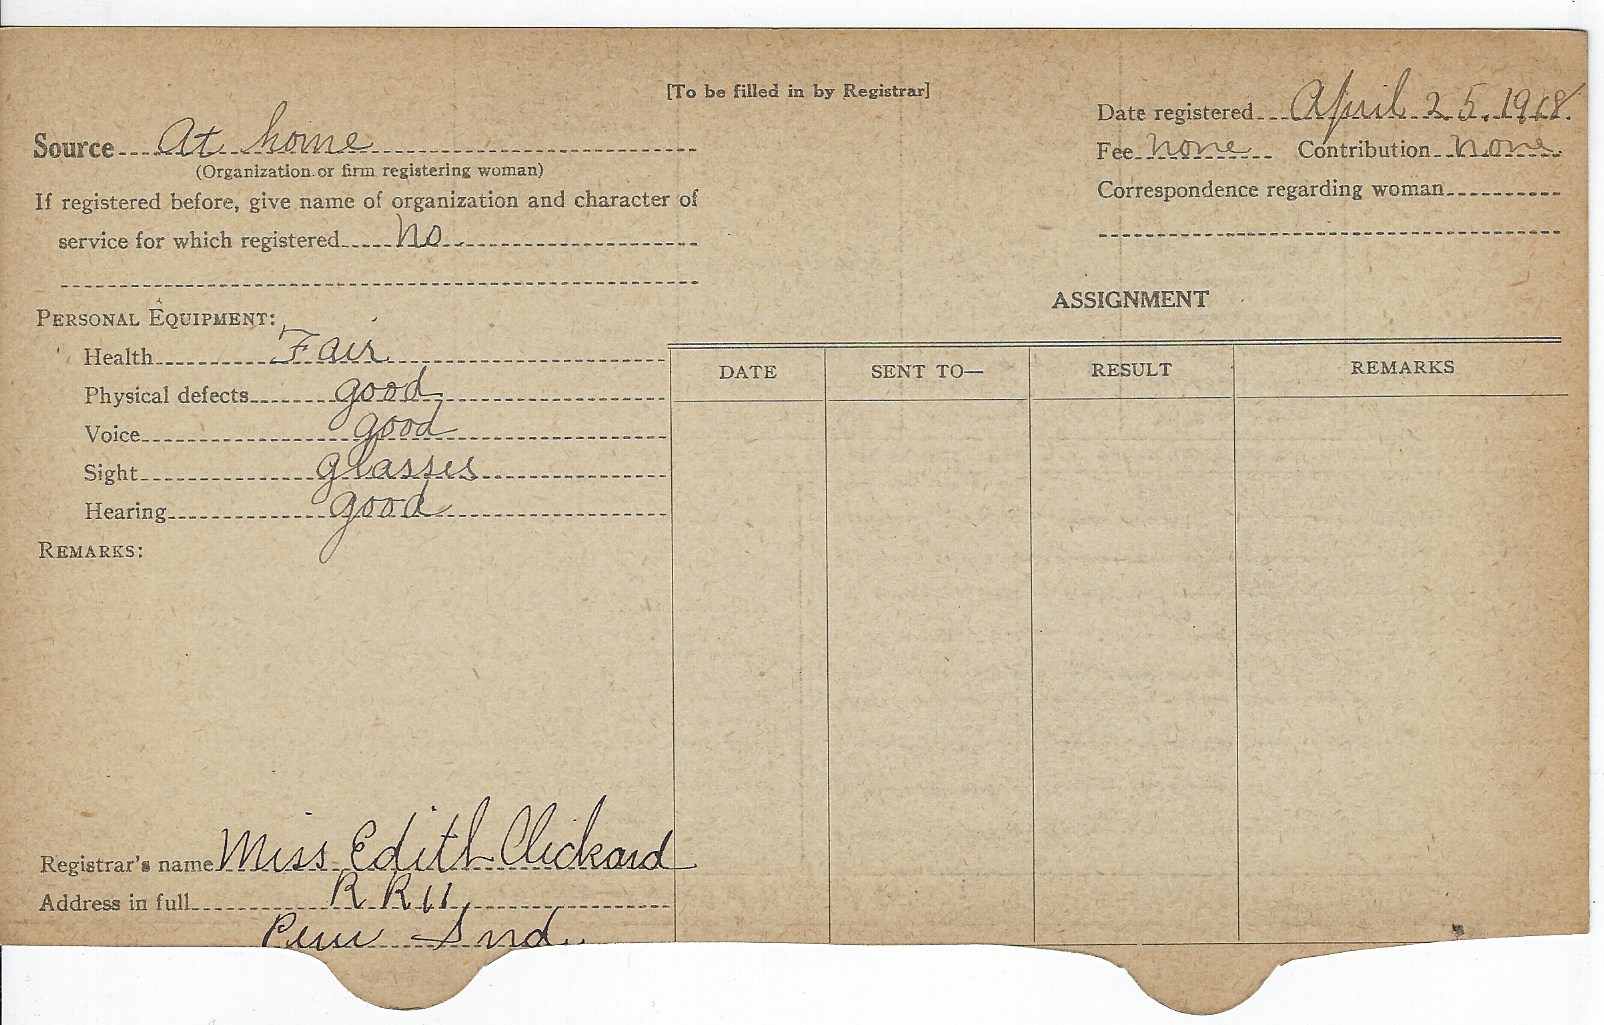 [To be filled in by Registrar]
Source At home
(Organization or firm registering woman)
If registered before, give name of organization and character of
service for which registered No
Date registered April 25, 1918.
Fee none Contribution none
Correspondence regarding woman
PERSONAL EQUIPMENT:
Health Fair
Physical defects good
Voice good
Sight glasses
Hearing good
REMARKS:
ASSIGNMENT
DATE SENT TO— RESULT REMARKS
Registrar's name Miss Edith Clickard
Address in full R R 11
Peru Ind.